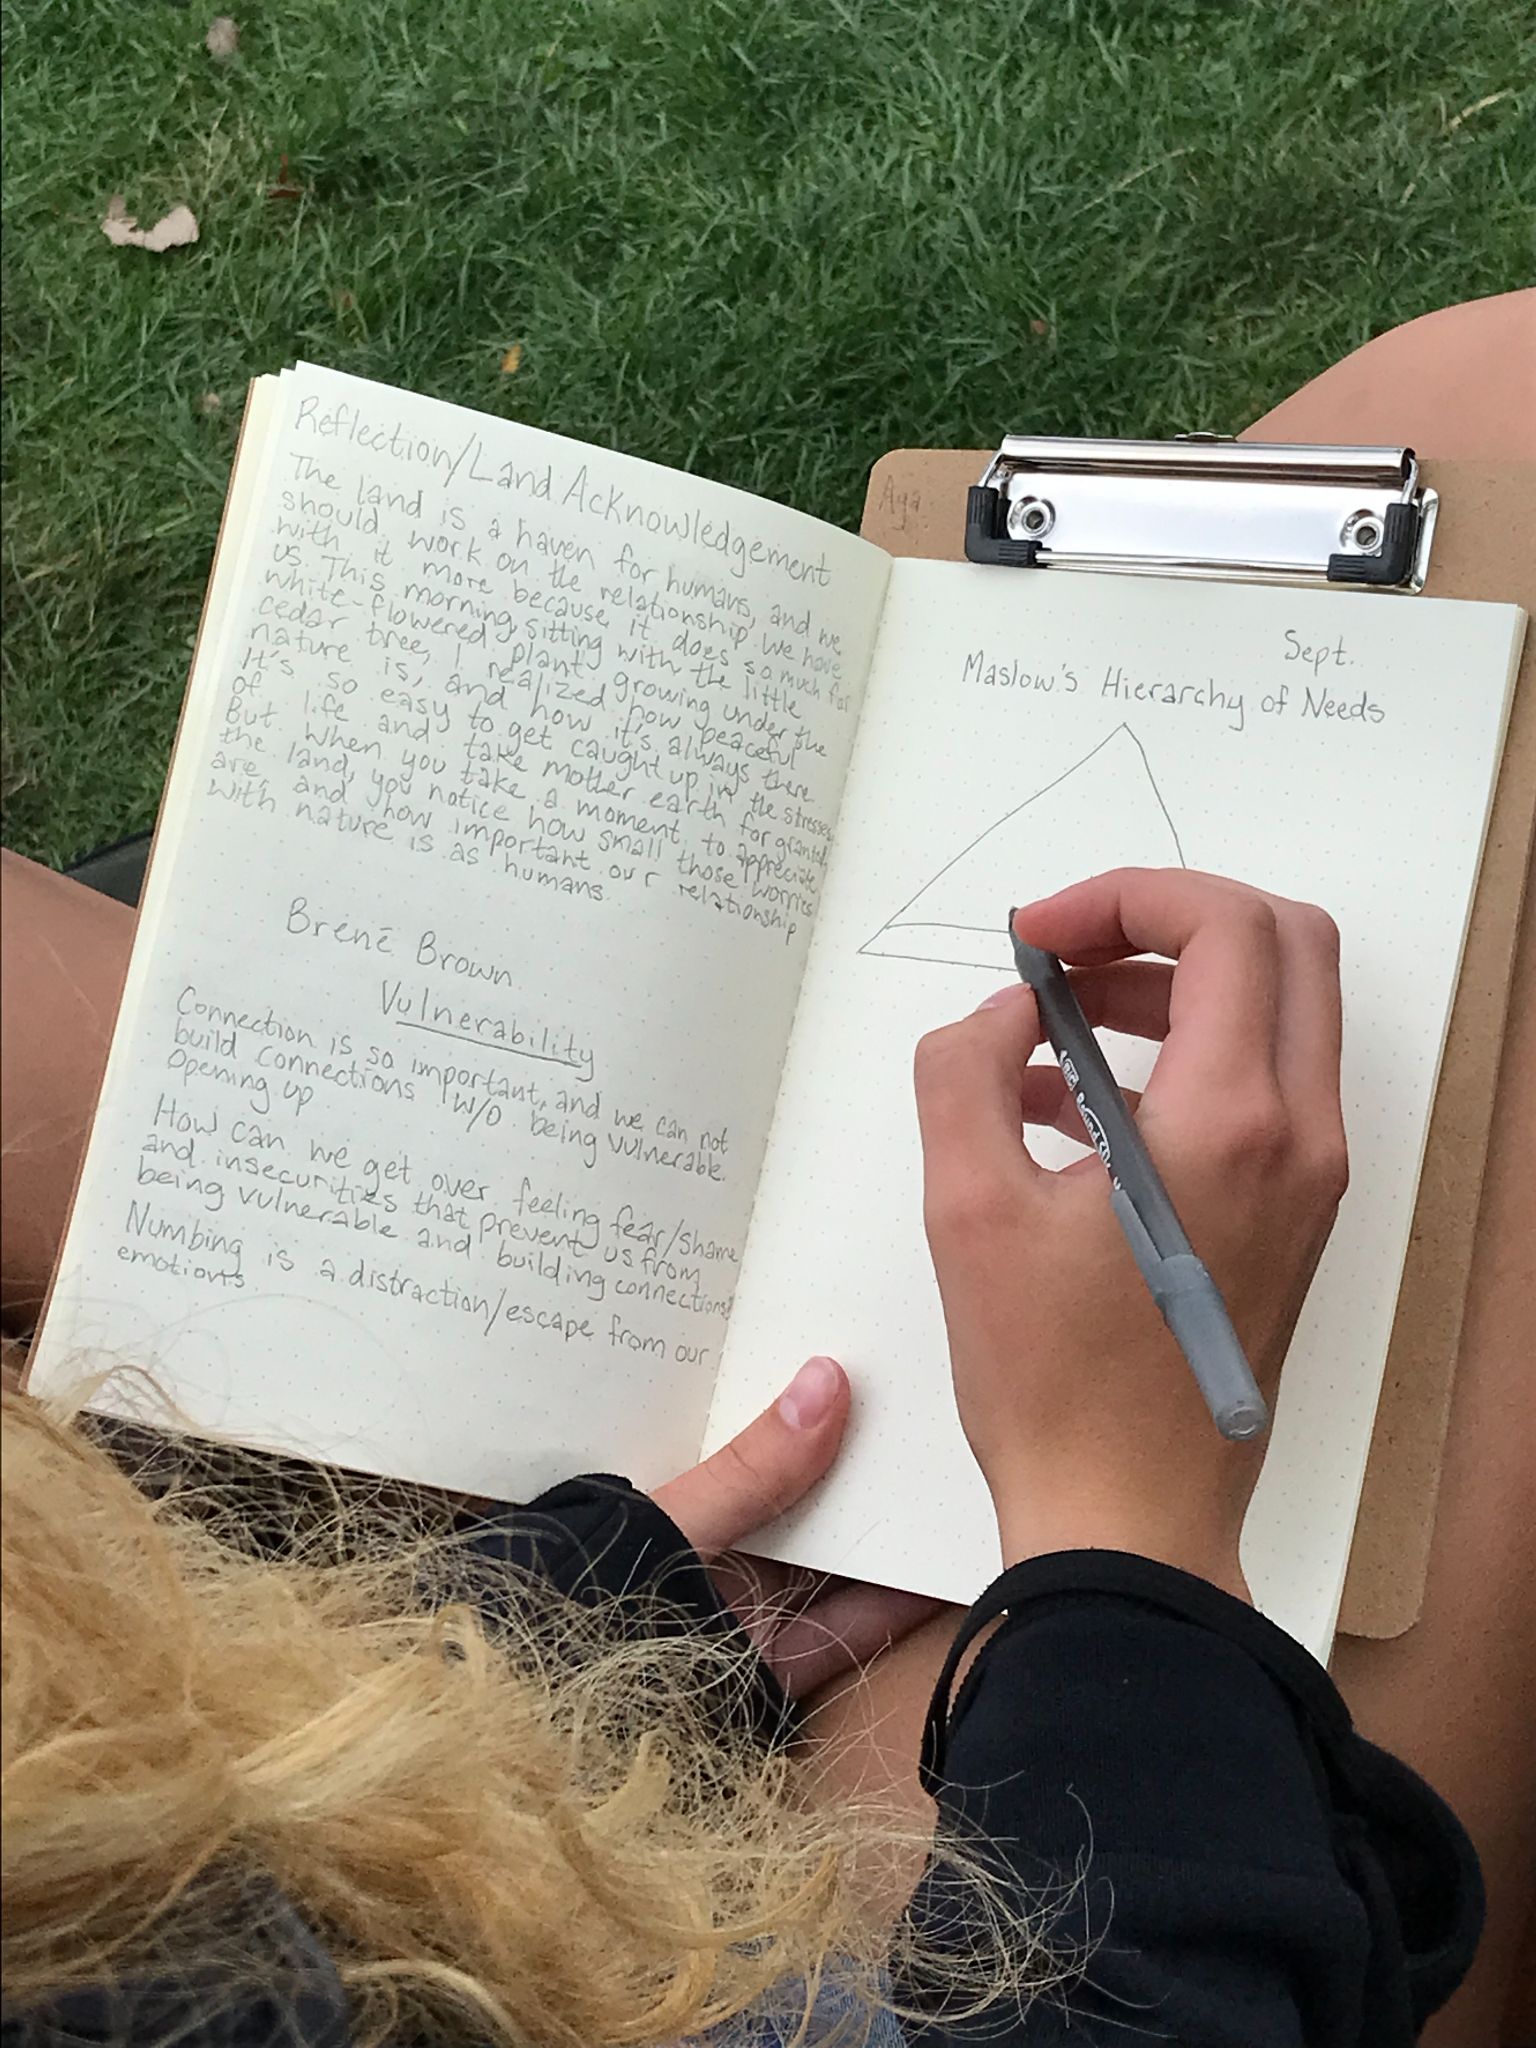 Reflection/Land Acknowledgement
The land is a haven for humans, and we
should work on the relationship we have
with it more because it does so much for
us. This morning, sitting with the little
white-flowered plant growing under the
cedar tree, I realized how peaceful
nature is, and how it's always there.
It's so easy to get caught up in the stresses
of life and take mother earth for granted.
But when you take a moment to appreciate
the land, you notice how small those worries
are, and how important our relationship
with nature is as humans.
Brené Brown
Vulnerability
Connection is so important, and we can not
build connections w/o being vulnerable.
Opening up
How can we get over feeling fear/shame
and insecurities that prevent us from
being vulnerable and building connections?
Numbing is a distraction/escape from our
emotions.
Aya
Sept.
Maslow's Hierarchy of Needs
BIC Round